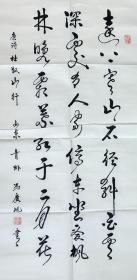 远上寒山石径斜白云
深处人家停车坐爱枫
林晚霜叶红于二月花
唐诗杜牧山行